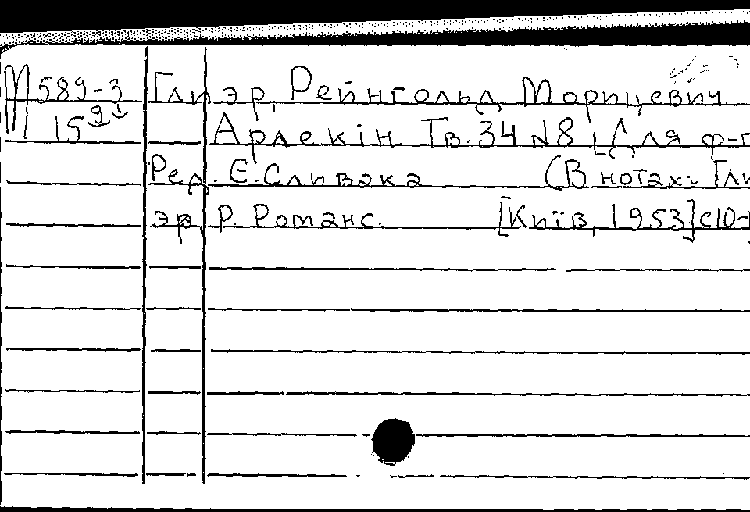 М 589-3 Глиэр, Рейнгольд Морицевич
15 Арлекін Тв. 34 №8 [Для ф-п
Ред. Є. Сливака (В нотах: Гли
эр, Р. Романс. [Київ, 1953] с10-